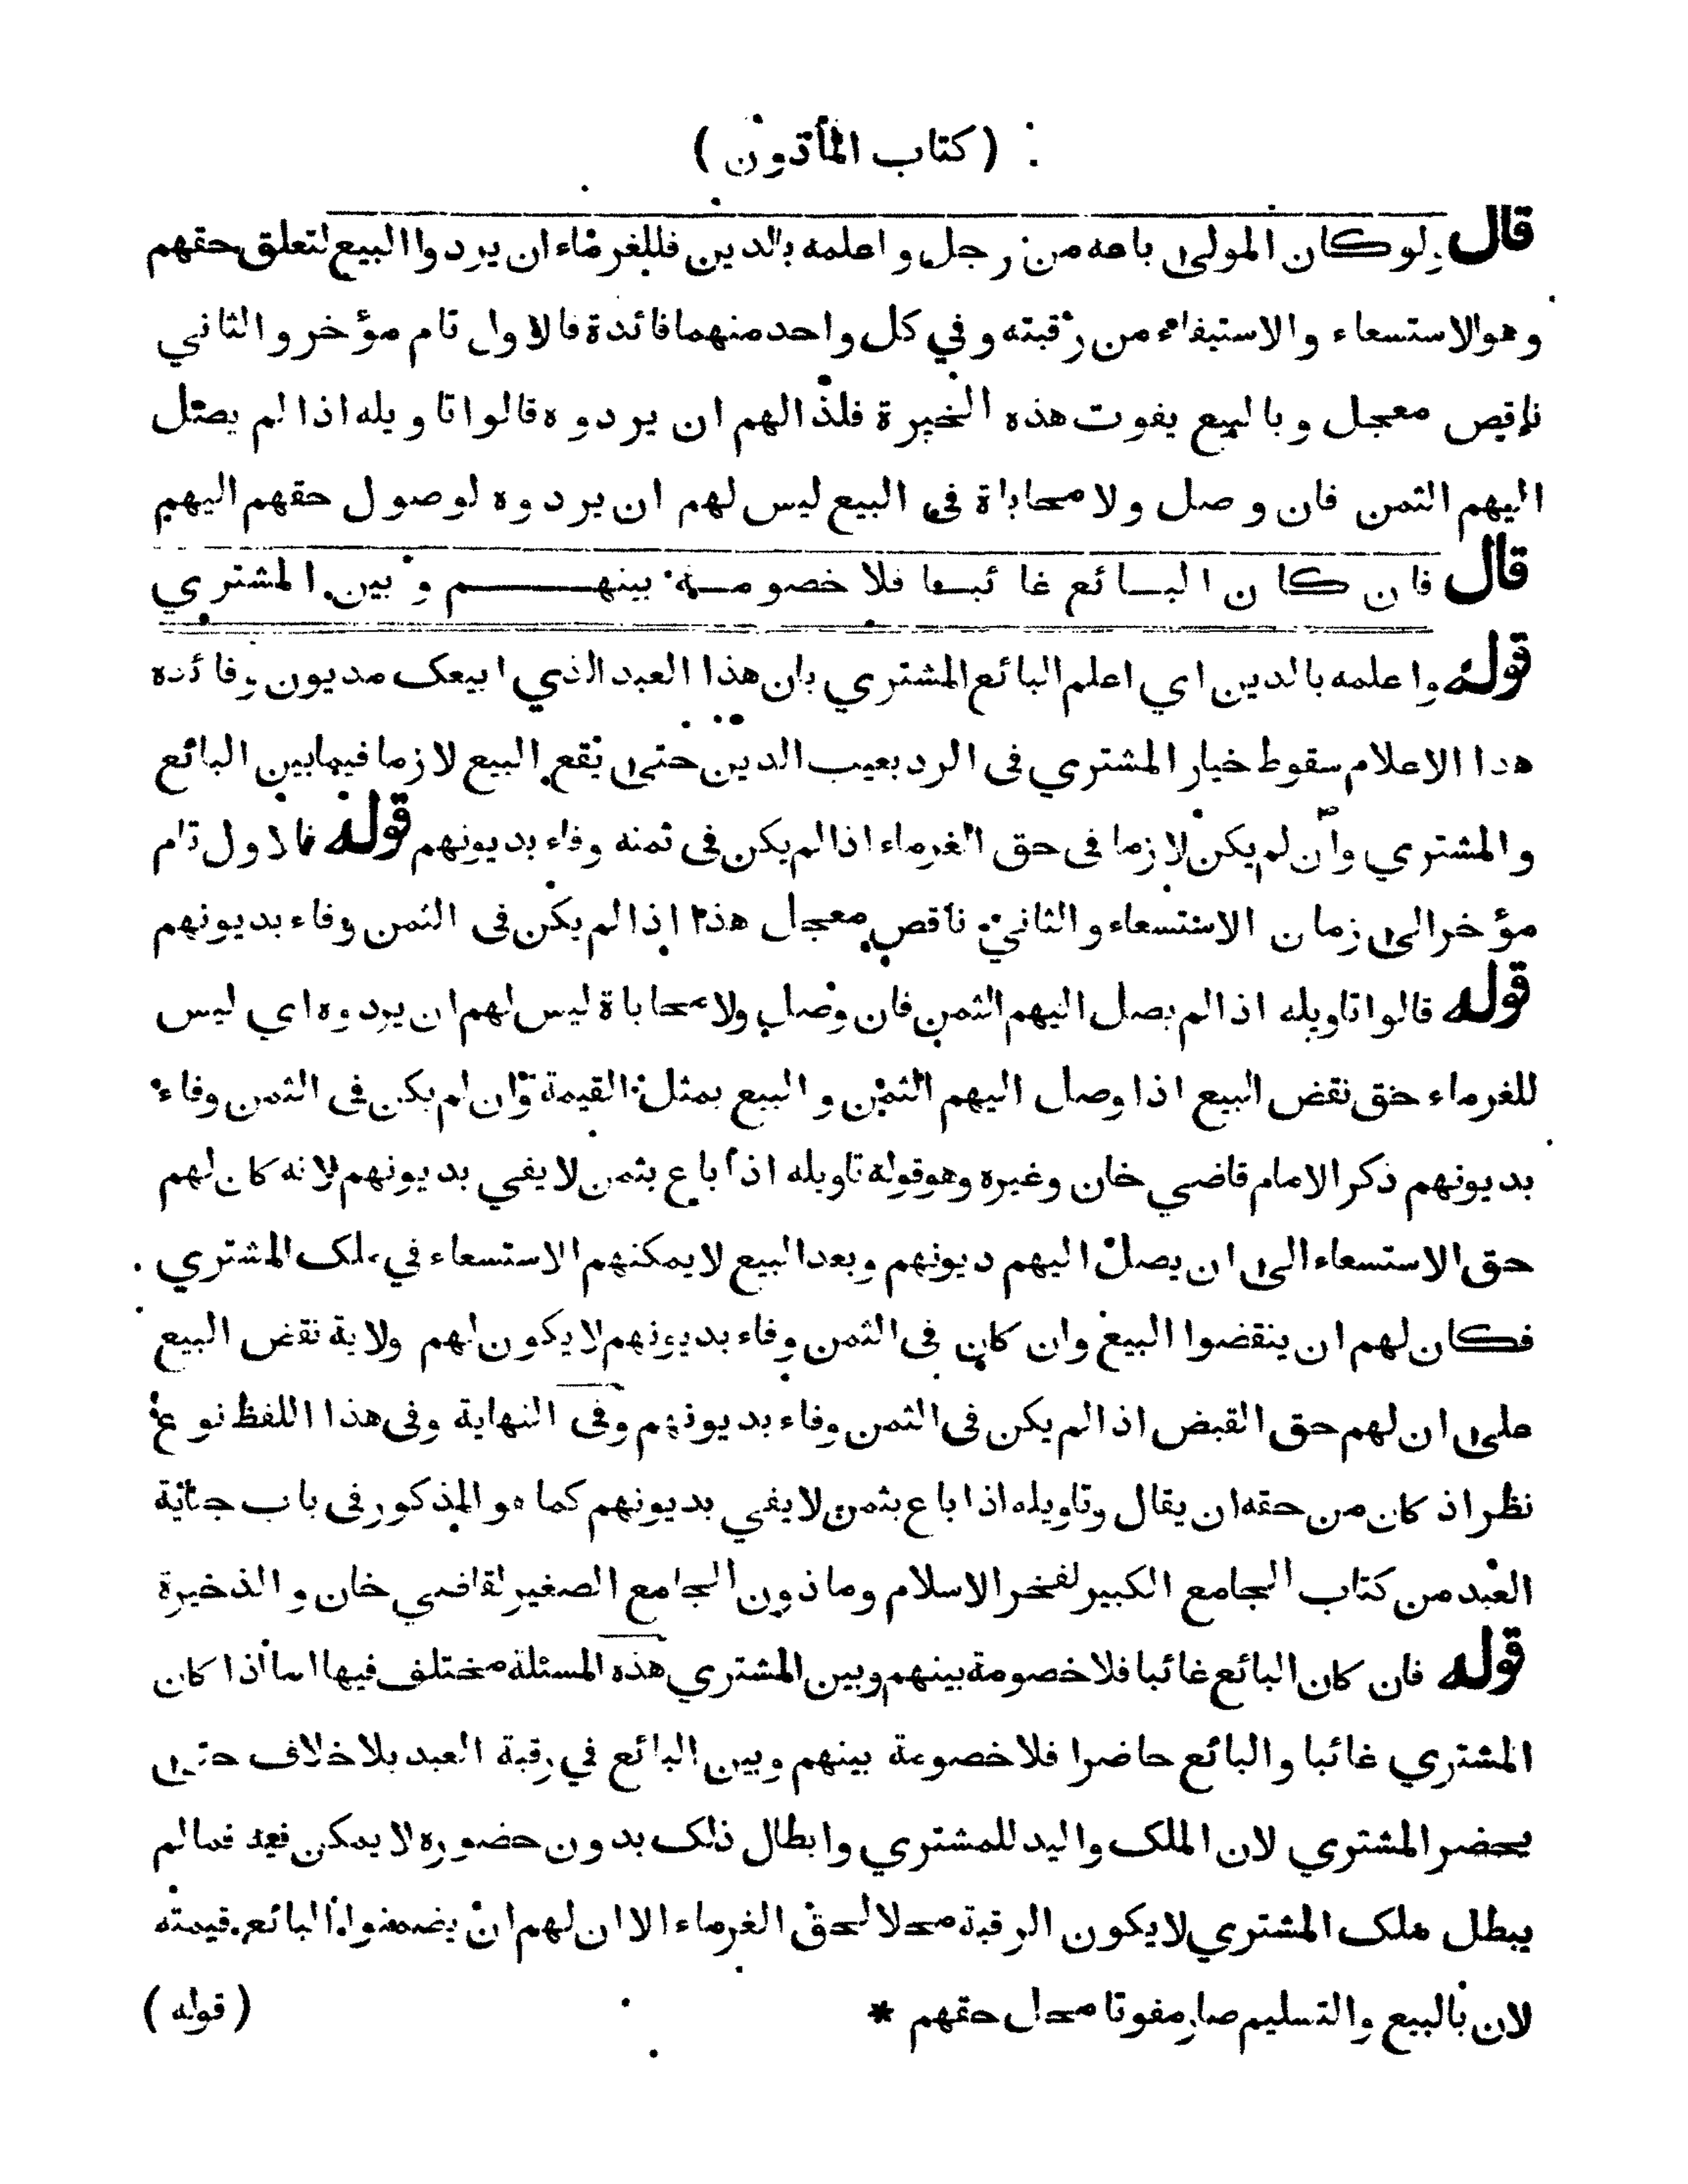 ( كتاب المأذون )
قال ولو كان المولى باعه من رجل و اعلمه بالدين فللغرماء ان يردوا البيع لتعلق حقهم
وهو الاستسعاء و الاستيفاء من رقبته و في كل واحد منهما فائدة فالاول تام مؤخر و الثاني
ناقص معجل و بالبيع يفوت هذه الخيرة فلذا لهم ان يردوه قالوا تاويله اذا لم يصل
اليهم الثمن فان وصل ولا محاباة في البيع ليس لهم ان يردوه لوصول حقهم اليهم
قال فان كان البائع غائبا فلا خصومة بينهم و بين المشتري
قوله واعلمه بالدين اي اعلم البائع المشتري بان هذا العبد الذي ابيعك مديون وفائدة
هذا الاعلام سقوط خيار المشتري في الرد بعيب الدين حتى يقع البيع لازما فيما بين البائع
و المشتري وان لم يكن لازما في حق الغرماء اذا لم يكن في ثمنه وفاء بديونهم قوله فالاول تام
مؤخر الى زمان الاستسعاء و الثاني ناقص معجل هذا اذا لم يكن في الثمن وفاء بديونهم
قوله قالوا تاويله اذا لم يصل اليهم الثمن فان وصل ولا محاباة ليس لهم ان يردوه اي ليس
للغرماء حق نقض البيع اذا وصل اليهم الثمن و البيع بمثل القيمة وان لم يكن في الثمن وفاء
بديونهم ذكر الامام قاضي خان وغيره وهو قوله تاويله اذا باع بثمن لا يفي بديونهم لانه كان لهم
حق الاستسعاء الى ان يصل اليهم ديونهم وبعد البيع لا يمكنهم الاستسعاء في ملك المشتري
فكان لهم ان ينقضوا البيع وان كان في الثمن وفاء بديونهم لا يكون لهم ولاية نقض البيع
على ان لهم حق القبض اذا لم يكن في الثمن وفاء بديونهم وفي النهاية وفي هذا اللفظ نوع
نظر اذ كان من حقه ان يقال وتاويله اذا باع بثمن لا يفي بديونهم كما هو المذكور في باب جناية
العبد من كتاب الجامع الكبير لفخر الاسلام وماذون الجامع الصغير لقاضي خان و الذخيرة
قوله فان كان البائع غائبا فلا خصومة بينهم وبين المشتري هذه المسئلة مختلف فيها اما اذا كان
المشتري غائبا و البائع حاضرا فلا خصومة بينهم وبين البائع في رقبة العبد بلا خلاف حتى
يحضر المشتري لان الملك و اليد للمشتري وابطال ذلك بدون حضوره لا يمكن فما لم
يبطل ملك المشتري لا يكون الرقبة محلا لحق الغرماء الا ان لهم ان يضمنوا البائع قيمته
لان بالبيع و التسليم صار مفوتا محل حقهم *
( قوله )